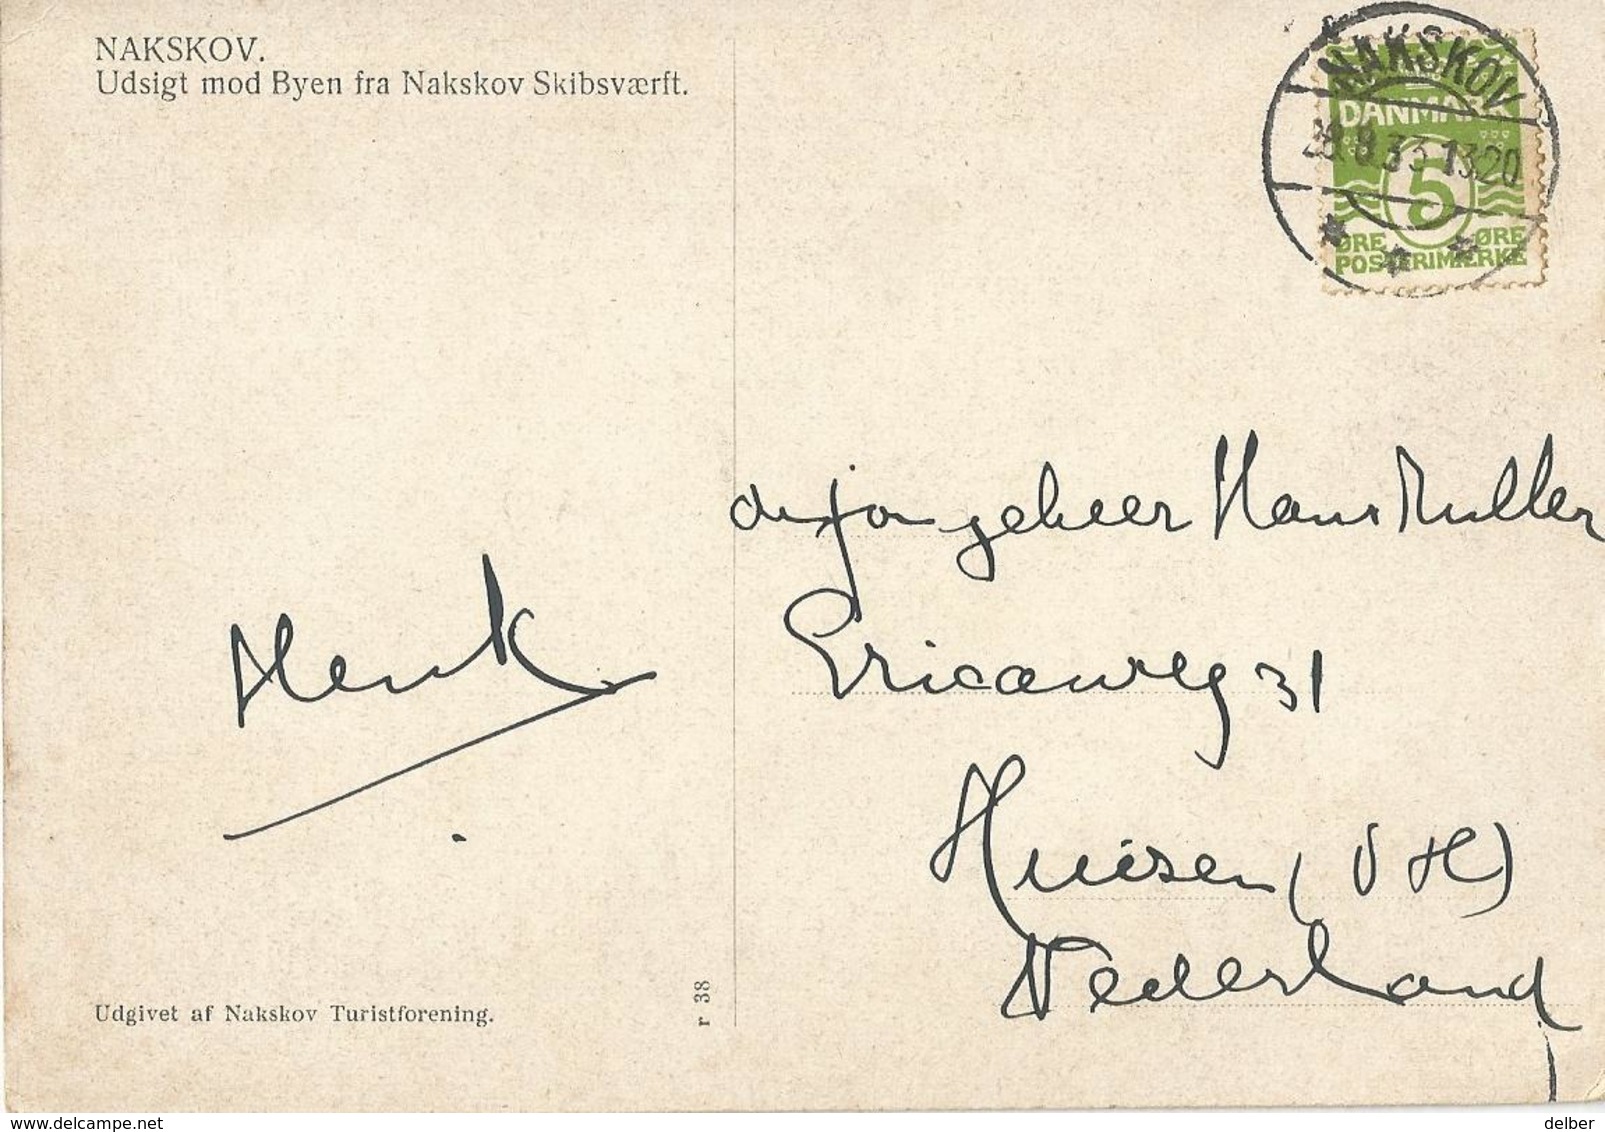 NAKSKOV.
Udsigt mod Byen fra Nakskov Skibsværft.
NAKSKOV
28.8.33 1320
DANMARK
5
ØRE ØRE
POSTFRIMÆRKE
de jongeheer Hans Muller
Ericaweg 31
Huizen (NH)
Nederland
Henk
Udgivet af Nakskov Turistforening.
r 38
delcampe.net
delber